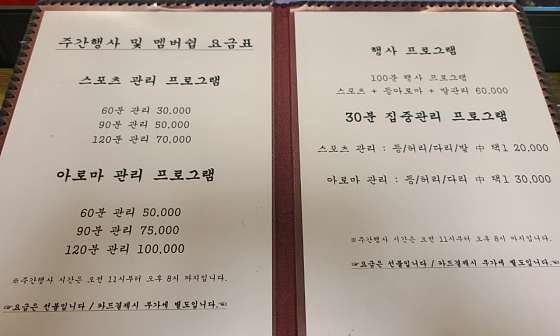 주간행사 및 멤버쉽 요금표
스포츠 관리 프로그램
60분 관리 30.000
90분 관리 50.000
120분 관리 70,000
아로마 관리 프로그램
60분 관리 50.000
90분 관리 75.000
120분 관리 100,000
※주간행사 시간은 오전 11시부터 오후 8시 까지입니다.
☞요금은 선불입니다 / 카드결제시 부가세 별도입니다.☜
행사 프로그램
100분 행사 프로그램
스포츠 + 등아로마 + 발관리 60,000
30분 집중관리 프로그램
스포츠 관리 : 등/허리/다리/발 中 택1 20,000
아로마 관리 : 등/허리/다리 中 택1 30,000
※주간행사 시간은 오전 11시부터 오후 8시 까지입니다.
☞요금은 선불입니다 / 카드결제시 부가세 별도입니다.☜